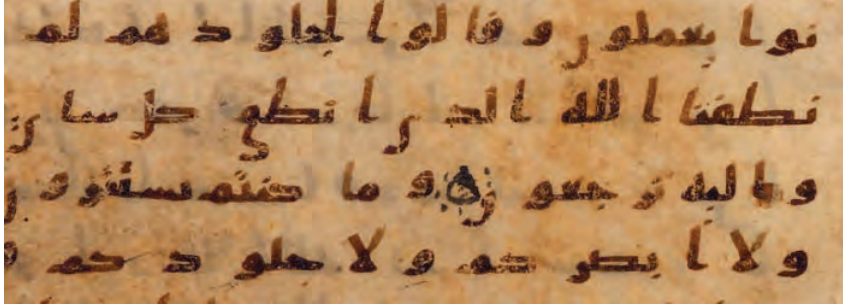 نوا يعملون و قالوا لجلودهم لم
نطقنا الله الذي انطق كل شاي
و اليه ترجعون و ما كنتم تستترون
و لا ابصركم و لا جلودكم و